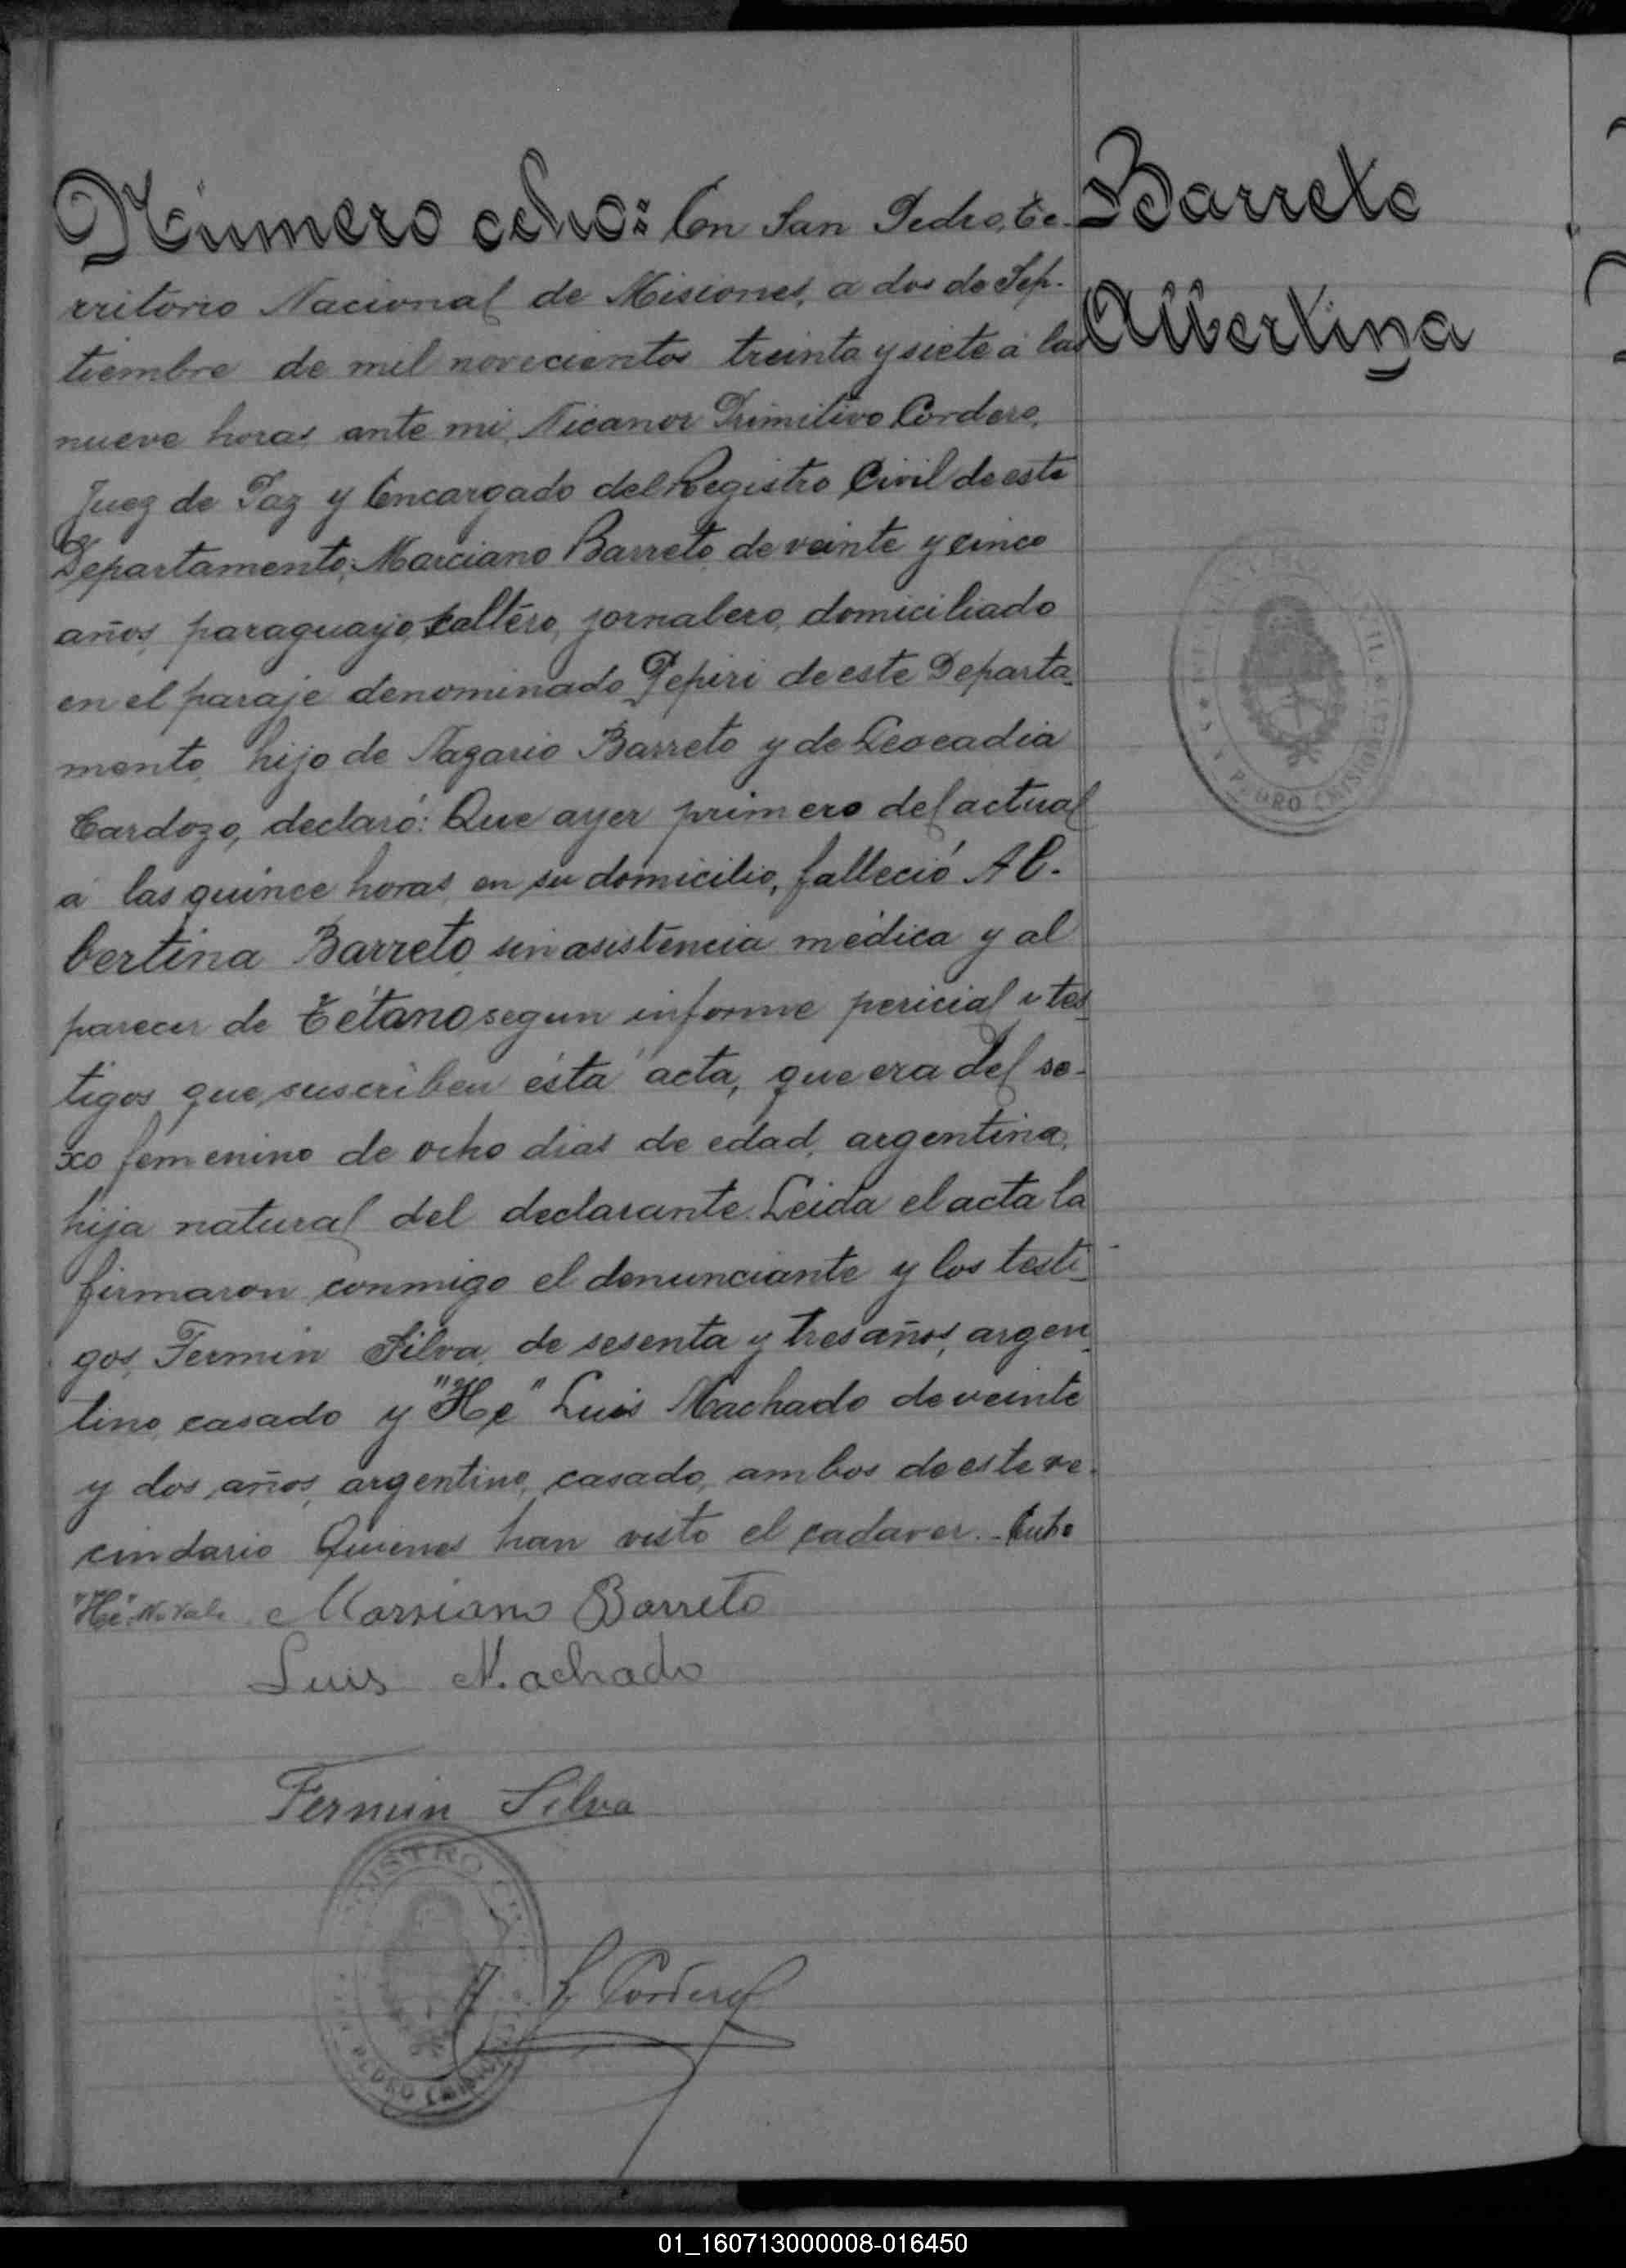 Número ocho: En San Pedro, Te-
rritorio Nacional de Misiones, a dos de Sep-
tiembre de mil novecientos treinta y siete a las
nueve horas, ante mi, Nicanor Primitivo Cordero,
Juez de Paz y Encargado del Registro Civil de este
Departamento, Marciano Barreto, de veinte y cinco
años, paraguayo, soltero, jornalero, domiciliado
en el paraje denominado Pepiri de este Departa-
mento, hijo de Nazario Barreto y de Leocadia
Cardozo, declaró: Que ayer primero del actual
a las quince horas, en su domicilio, falleció Al-
bertina Barreto, sin asistencia médica y al
parecer de Tétano segun informe pericial y tes-
tigos que suscriben ésta acta, que era del se-
xo femenino de ocho dias de edad, argentina,
hija natural del declarante. Leida el acta la
firmaron conmigo el denunciante y los testi-
gos, Fermin Silva, de sesenta y tres años, argen-
tino, casado y "He" Luis Machado de veinte
y dos años, argentino, casado, ambos de este ve-
cindario Quienes han visto el cadaver.-
"He" No Vale Marsiano Barreto
Luis Machado
Fermin Silva
Cordero
PEDRO (MISIONES)
Barreto
Albertina
PEDRO (MISIONES)
01_160713000008-016450